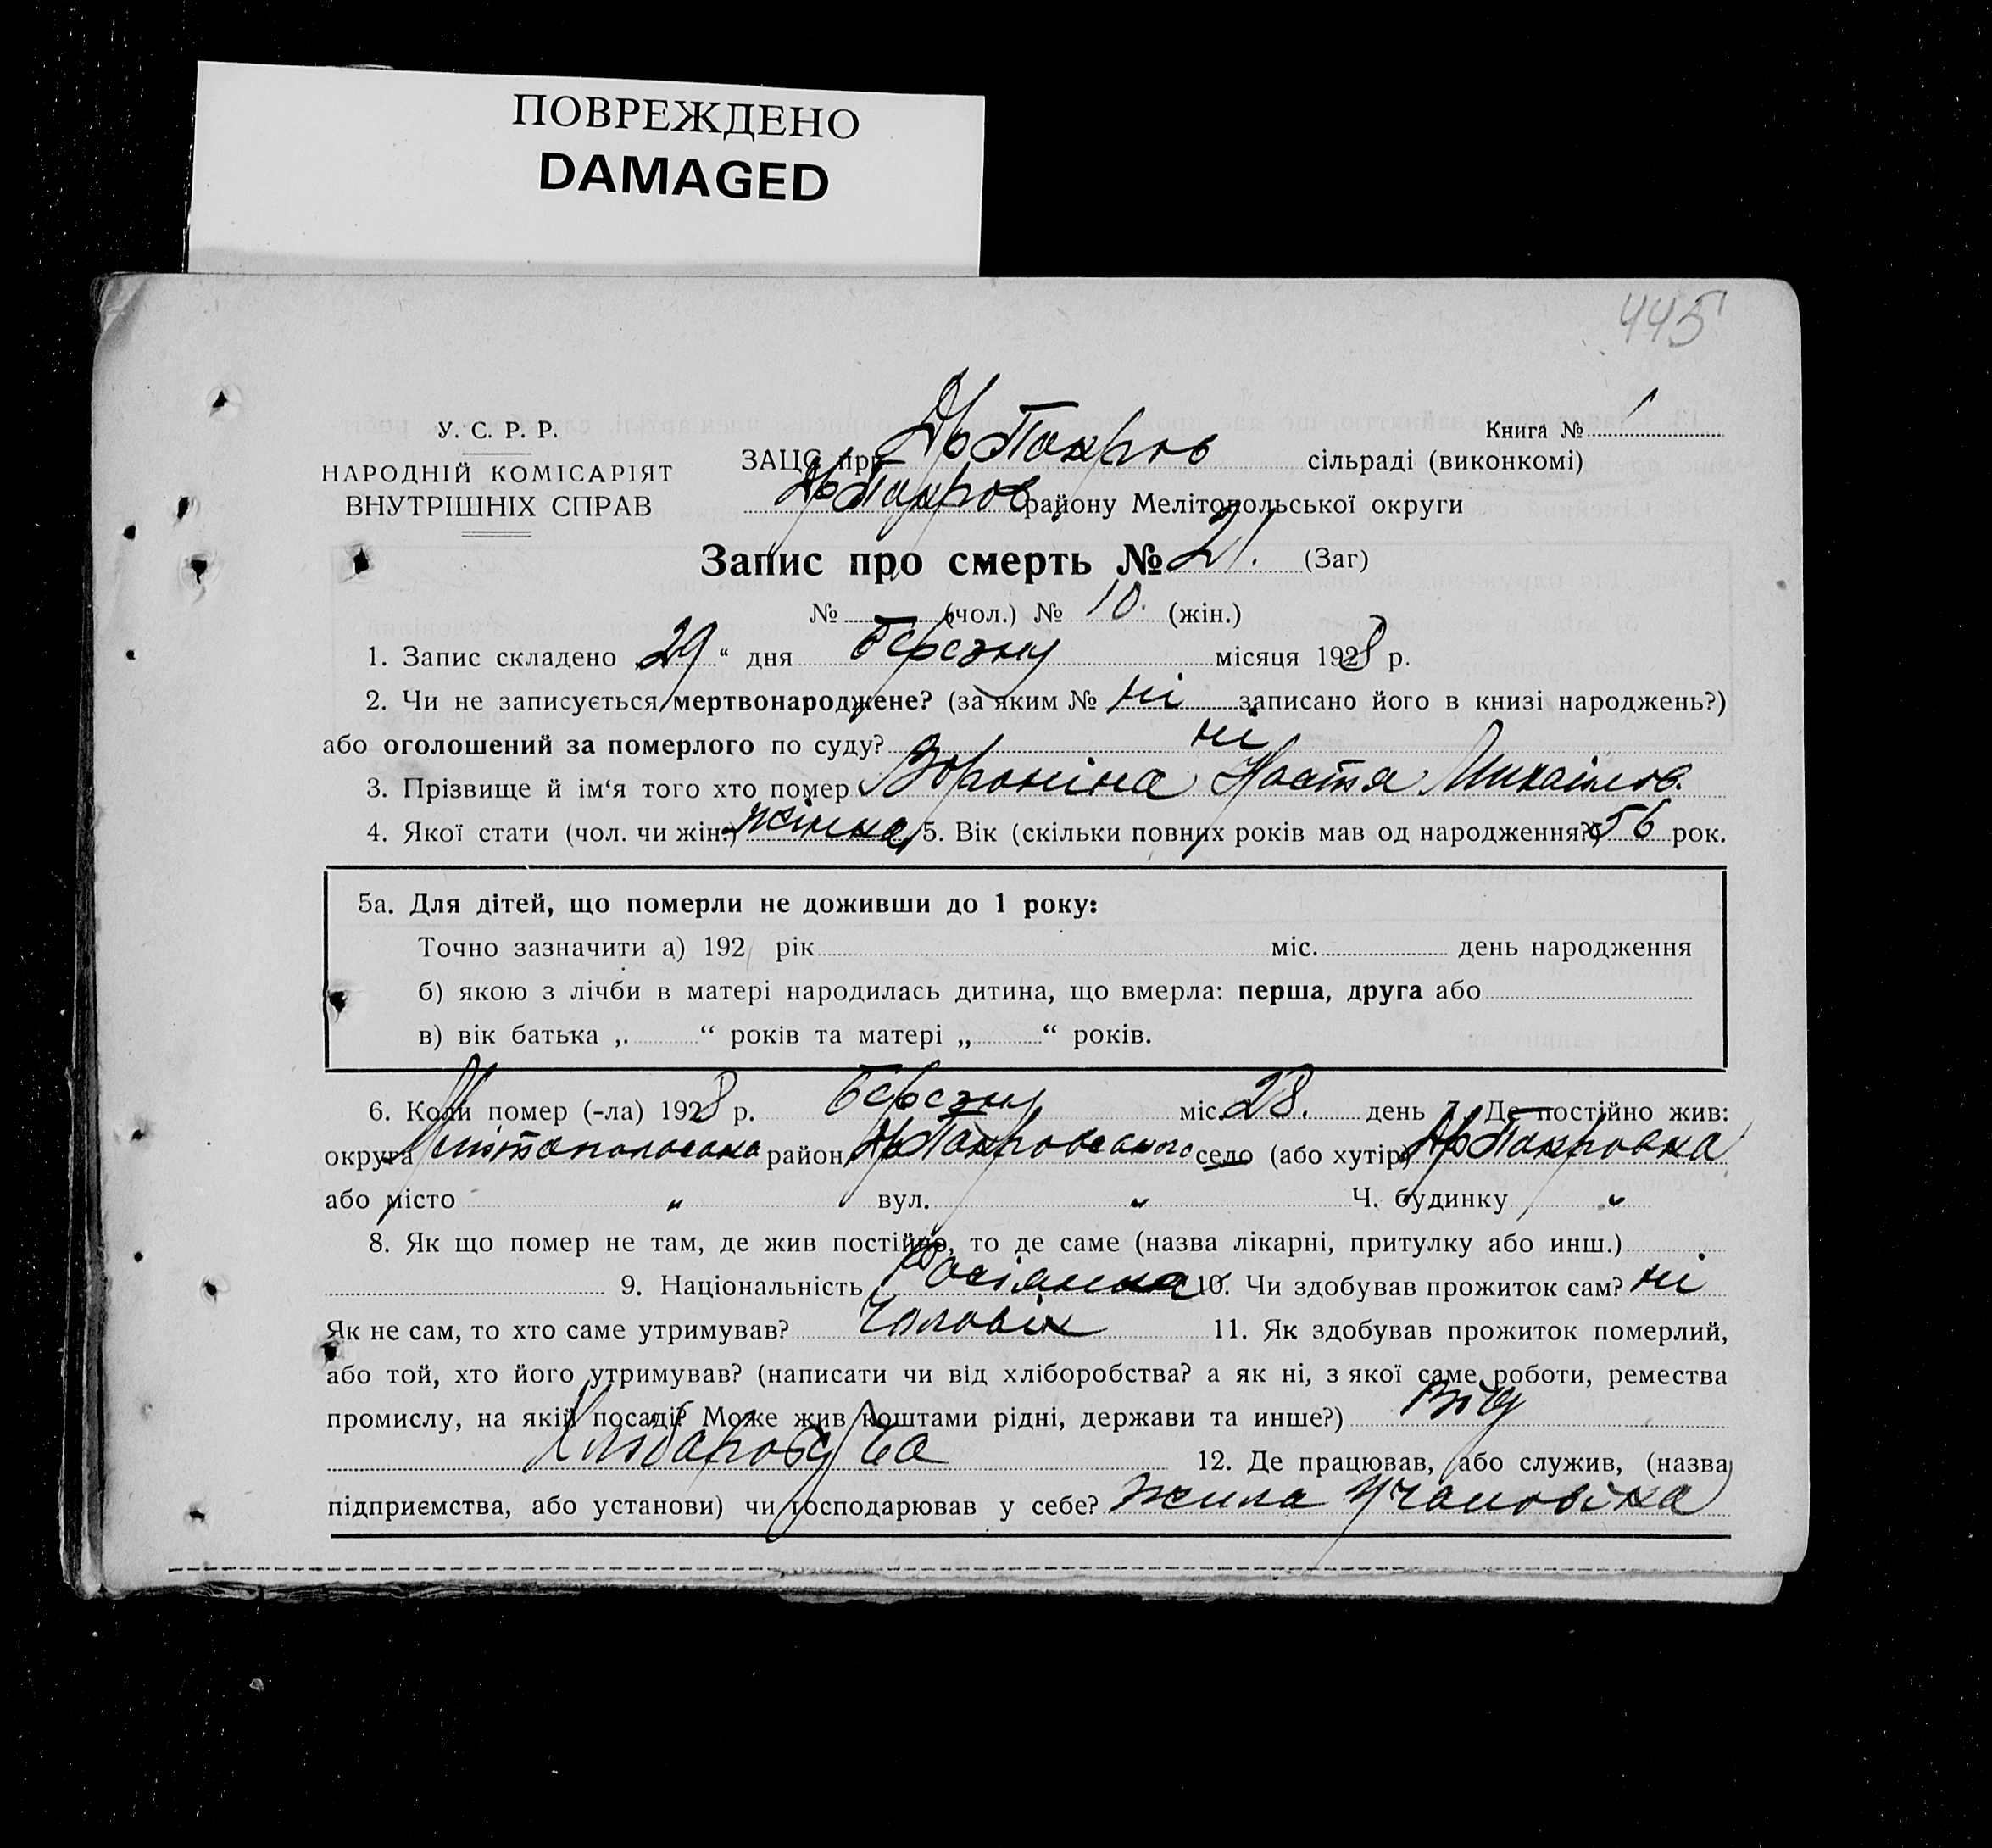 ПОВРЕЖДЕНО
DAMAGED
445
У. С. Р. Р.
НАРОДНІЙ КОМІСАРІЯТ
ВНУТРІШНІХ СПРАВ
Книга № 1
ЗАЦС при Др Покров сільраді (виконкомі)
Др Покров району Мелітопольської округи
Запис про смерть № 21. (Заг)
№ (чол.) № 10. (жін.)
1. Запис складено 29 “ дня Березну місяця 1928 р.
2. Чи не записується мертвонароджене? (за яким № ні записано його в книзі народжень?)
або оголошений за померлого по суду? ні
3. Прізвище й ім‘я того хто помер Вороніна Настя Михаілов.
4. Якої стати (чол. чи жін.) жінка 5. Вік (скільки повних років мав од народження?) 56 рок.
5а. Для дітей, що померли не доживши до 1 року:
Точно зазначити а) 192 рік міс. день народження
б) якою з лічби в матері народилась дитина, що вмерла: перша, друга або
в) вік батька „ “ років та матері „ “ років.
6. Коли помер (-ла) 1928 р. Березну міс. 28. день 7. Де постійно жив:
округа Мелітопольська район Др Покровського село (або хутір) Др Покровка
або місто „ вул. „ Ч. будинку „
8. Як що помер не там, де жив постійно, то де саме (назва лікарні, притулку або инш.)
9. Національність Росіянка 10. Чи здобував прожиток сам? ні
Як не сам, то хто саме утримував? Чоловік 11. Як здобував прожиток померлий,
або той, хто його утримував? (написати чи від хліборобства? а як ні, з якої саме роботи, ремества
промислу, на якій посаді? Може жив коштами рідні, держави та инше?) від
12. Де працював, або служив, (назва
підприємства, або установи) чи господарював у себе? жила у чоловіка